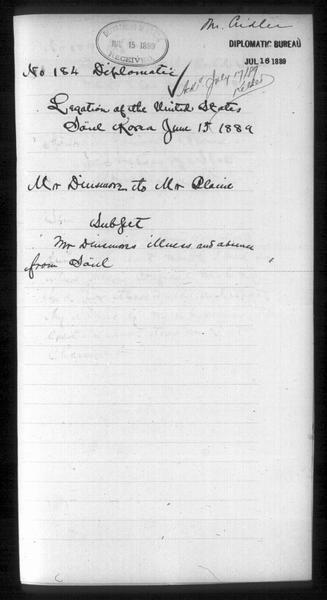 Mr. Aidler
DIPLOMATIC BUREAU
JUL 16 1889
JUL 15 1889
RECEIVED
No 184 Diplomatic
Ackd July 17/89
Legation of the United States
Söul Korea June 15 1889
Mr Dinsmore to Mr Blaine
Subject
Mr Dinsmore's illness and absence
from Söul